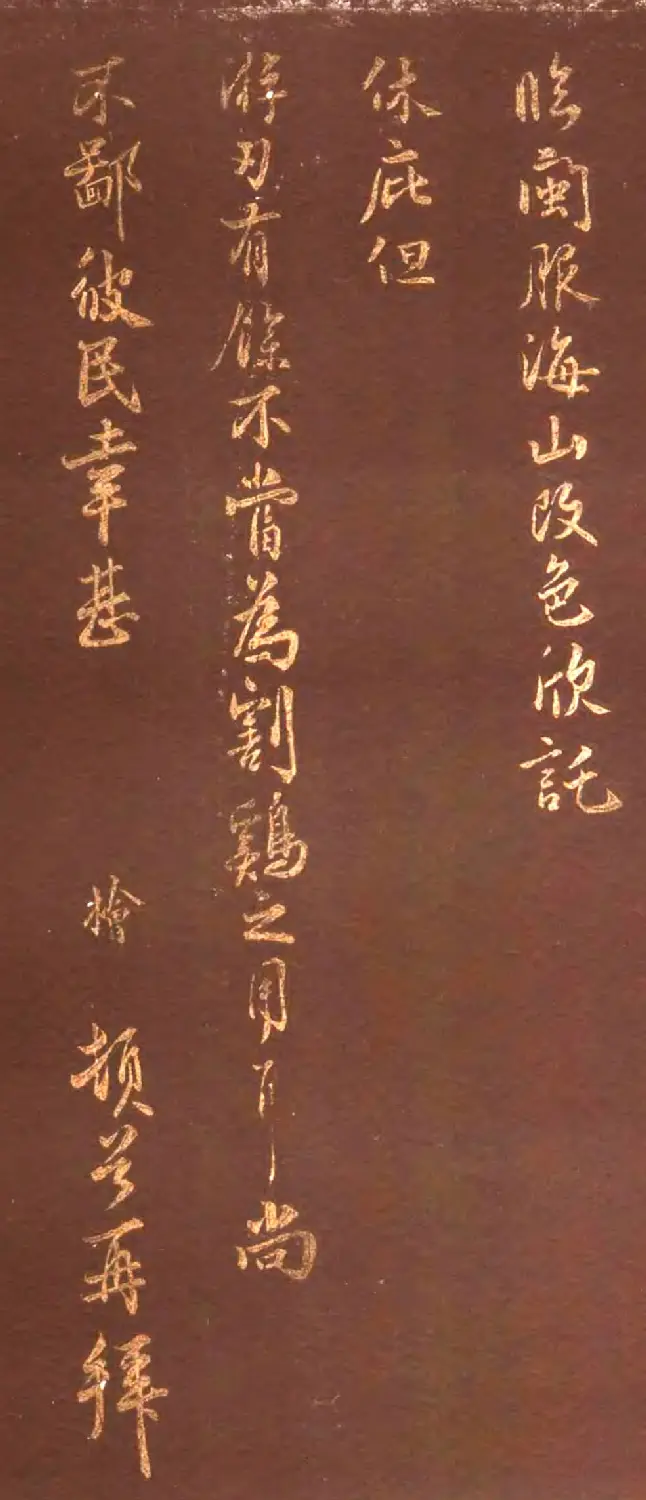 臨閩服海山改色欣託
休庇但
游刃有餘不嘗為割鷄之用耳尚
不鄙彼民幸甚 檜 頓首再拜